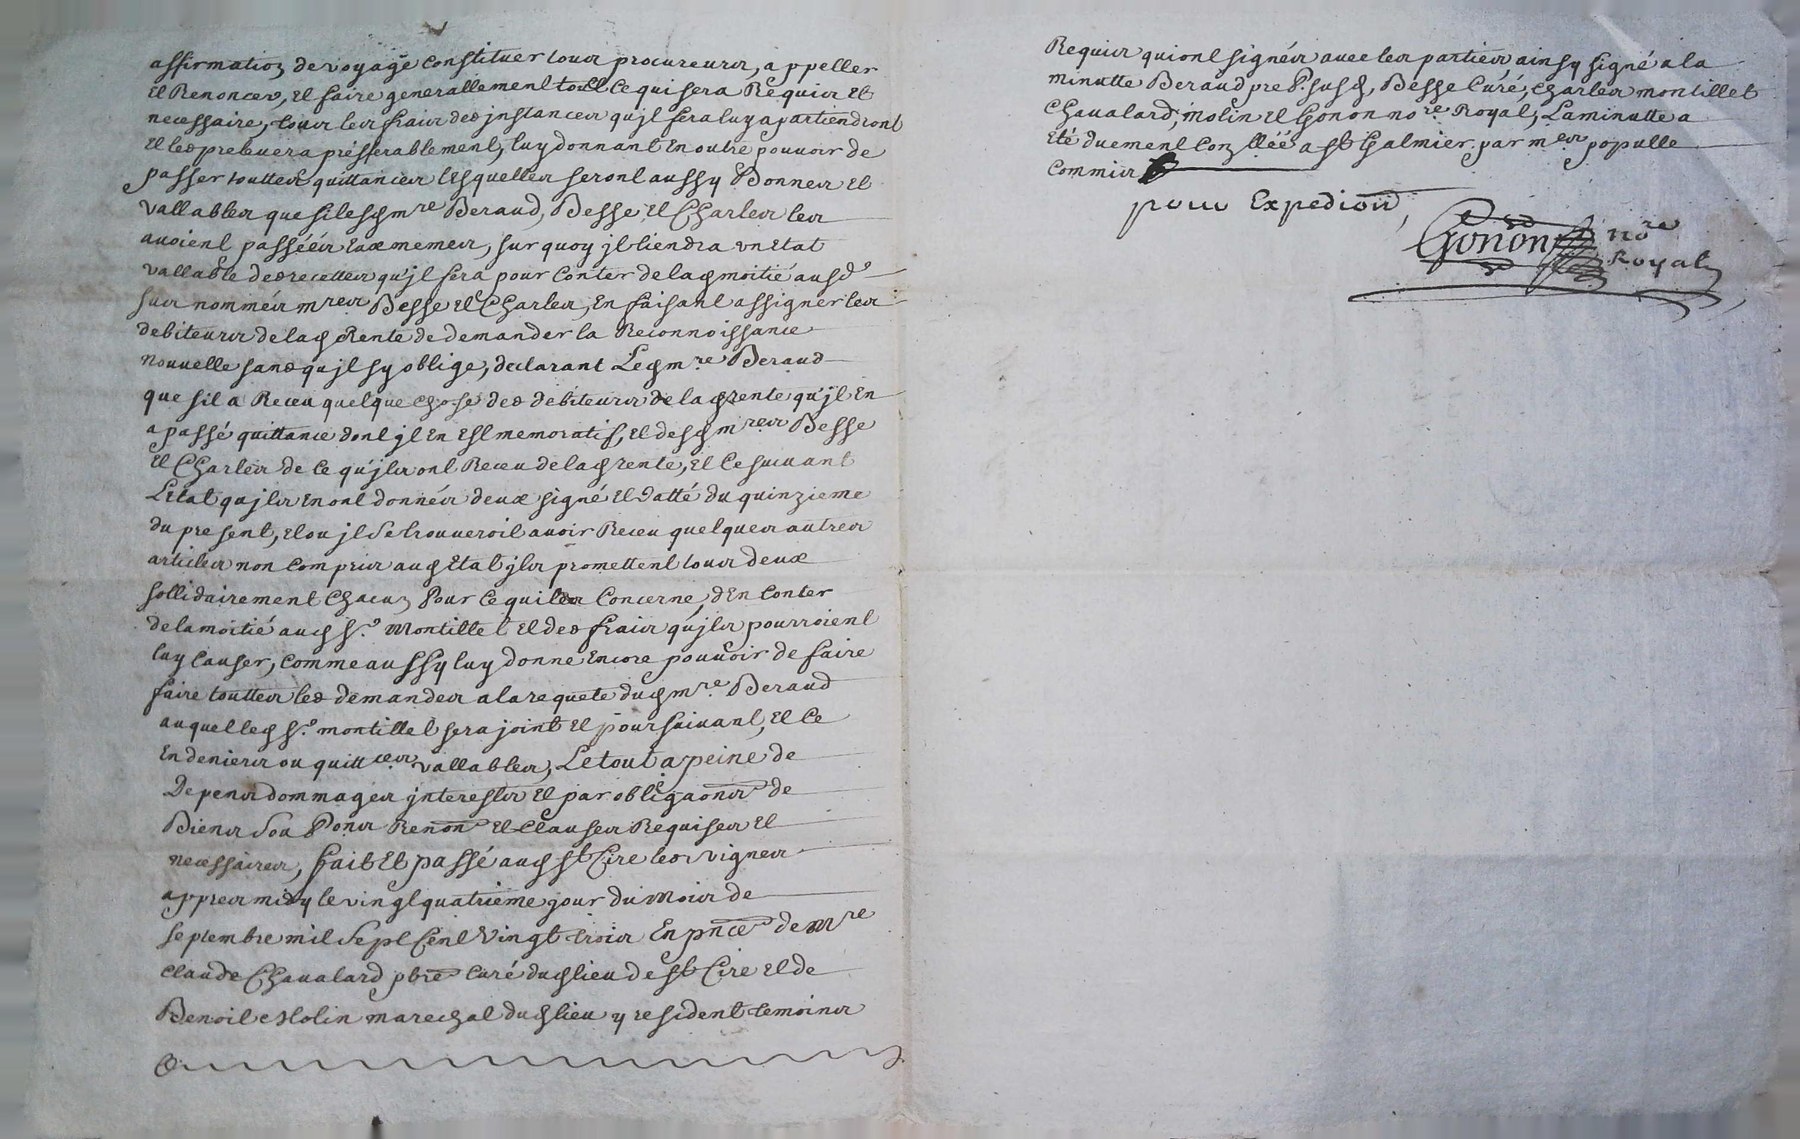 affirmation de voyage constituer tous procureurs, appeller
et Renoncer, et faire generallement tout ce qui sera Requis et
necessaire, tous les fraix des jnstances qu'jl fera luy apartiendront
et les prelevera présferablement, luy donnant en outre pouvoir de
passer touttes quittances lesquelles seront aussy Bonnes et
vallables que si lesd mre Beraud, Besse et Charles les
avoient passéés eux memes, sur quoy jl tiendra un etat
vallable des recettes qu'jl fera pour conter de lad moitié ausd
sus nommés mres Besse et Charles, en faisant assigner les
debiteurs de lad Rente de demander la Reconnoissance
nouvelle sans qu'jl sy oblige, declarant Led mre Beraud
que sil a Receu quelque chose des debiteurs de lad rente qu'jl en
a passé quittance dont jl en est memoratif, et desd mres Besse
et Charles de ce qu'jls ont Receu de lad rente, et ce suivant
Letat qu'jls en ont donnés deux signé et datté du quinzieme
du present, et ou jl se trouveroit avoir Receu quelques autres
articles non compris aud etat jls promettent tous deux
sollidairement chacun pour ce qui les concerne, d'en conter
de la moitié aud sr. Montillet et des fraix qu'jls pourroient
luy causer, comme aussy luy donne encore pouvoir de faire
faire touttes les demandes a la requete dud mre Beraud
auquel led sr. montillet sera joint et poursuivant, et ce
en deniers ou quittces vallables, Le tout a peine de
Depens dommages jnterests et par obligaons de
Biens sou Pons Renon et clauses Requises et
necessaires, fait et passé aud st Cire les vignes
appres midy le vingt quatrieme jour du mois de
septembre mil sept cent vingt trois en pnce de mre
claude Chavalard pbre curé dud lieu de st Cire et de
Benoit Molin marechal dud lieu y resident temoins
Requis qui ont signés avec les parties ainsy signé a la
minutte Beraud pre P. susd, Besse Curé, Charles montillet
Chavalard, molin et Gonon nore Royal, La minutte a
eté duement conllée a st Galmier par mer populle
commis
pour Expedion,
Gonon nore
Royal